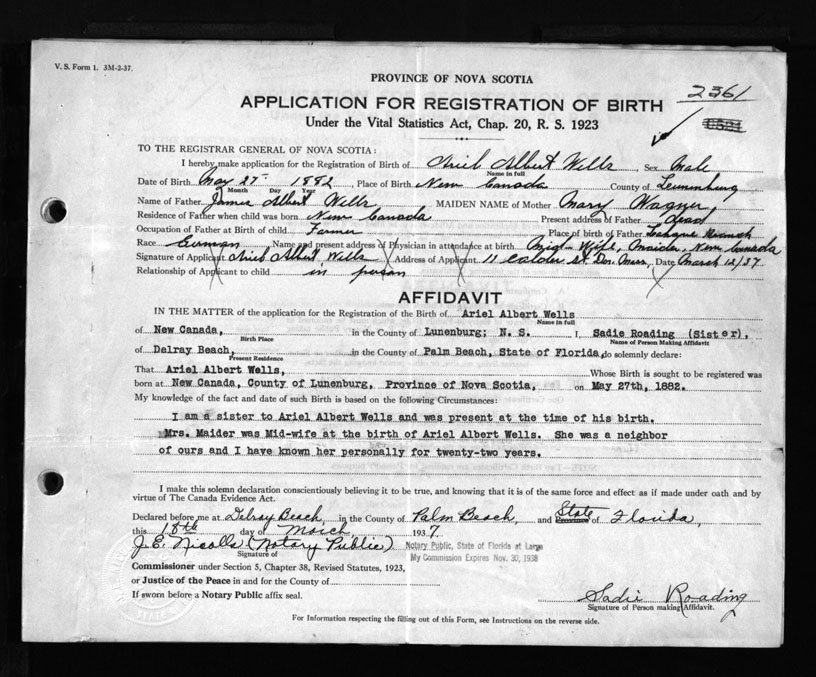 V. S. Form 1. 3M-2-37.
PROVINCE OF NOVA SCOTIA
2361
APPLICATION FOR REGISTRATION OF BIRTH
Under the Vital Statistics Act, Chap. 20, R. S. 1923
TO THE REGISTRAR GENERAL OF NOVA SCOTIA:
I hereby make application for the Registration of Birth of Ariel Albert Wells Sex Male
Name in full
Date of Birth May 27 1882, Place of Birth New Canada County of Lunenburg
Month Day Year
Name of Father James Albert Wells MAIDEN NAME of Mother Mary Wagner
Residence of Father when child was born New Canada Present address of Father dead
Occupation of Father at Birth of child Farmer Place of Birth of Father
Race German Name and present address of Physician in attendance at birth Mid-Wife, Maider, New Canada
Signature of Applicant Ariel Albert Wells Address of Applicant 11 Calder St. Dor. Mass, Date March 12/37
Relationship of Applicant to child in person
AFFIDAVIT
IN THE MATTER of the application for the Registration of the Birth of Ariel Albert Wells
Name in full
of New Canada, in the County of Lunenburg; N. S. I, Sadie Roading (Sister),
Birth Place Name of Person Making Affidavit
of Delray Beach, in the County of Palm Beach, State of Florida, do solemnly declare:
Present Residence
That Ariel Albert Wells, Whose Birth is sought to be registered was
born at New Canada, County of Lunenburg, Province of Nova Scotia, on May 27th, 1882.
My knowledge of the fact and date of such Birth is based on the following Circumstances:
I am a sister to Ariel Albert Wells and was present at the time of his birth.
Mrs. Maider was Mid-wife at the birth of Ariel Albert Wells. She was a neighbor
of ours and I have known her personally for twenty-two years.
I make this solemn declaration conscientiously believing it to be true, and knowing that it is of the same force and effect as if made under oath and by
virtue of The Canada Evidence Act.
Declared before me at Delray Beach, in the County of Palm Beach, and State Province of Florida,
this 18th day of March, 1937
J. E. Nicolls (Notary Public) Notary Public, State of Florida at Large
Signature of My Commission Expires Nov. 30, 1938
Commissioner under Section 5, Chapter 38, Revised Statutes, 1923,
or Justice of the Peace in and for the County of
If sworn before a Notary Public affix seal.
Sadie Roading
Signature of Person making Affidavit.
For Information respecting the filling out of this Form, see Instructions on the reverse side.